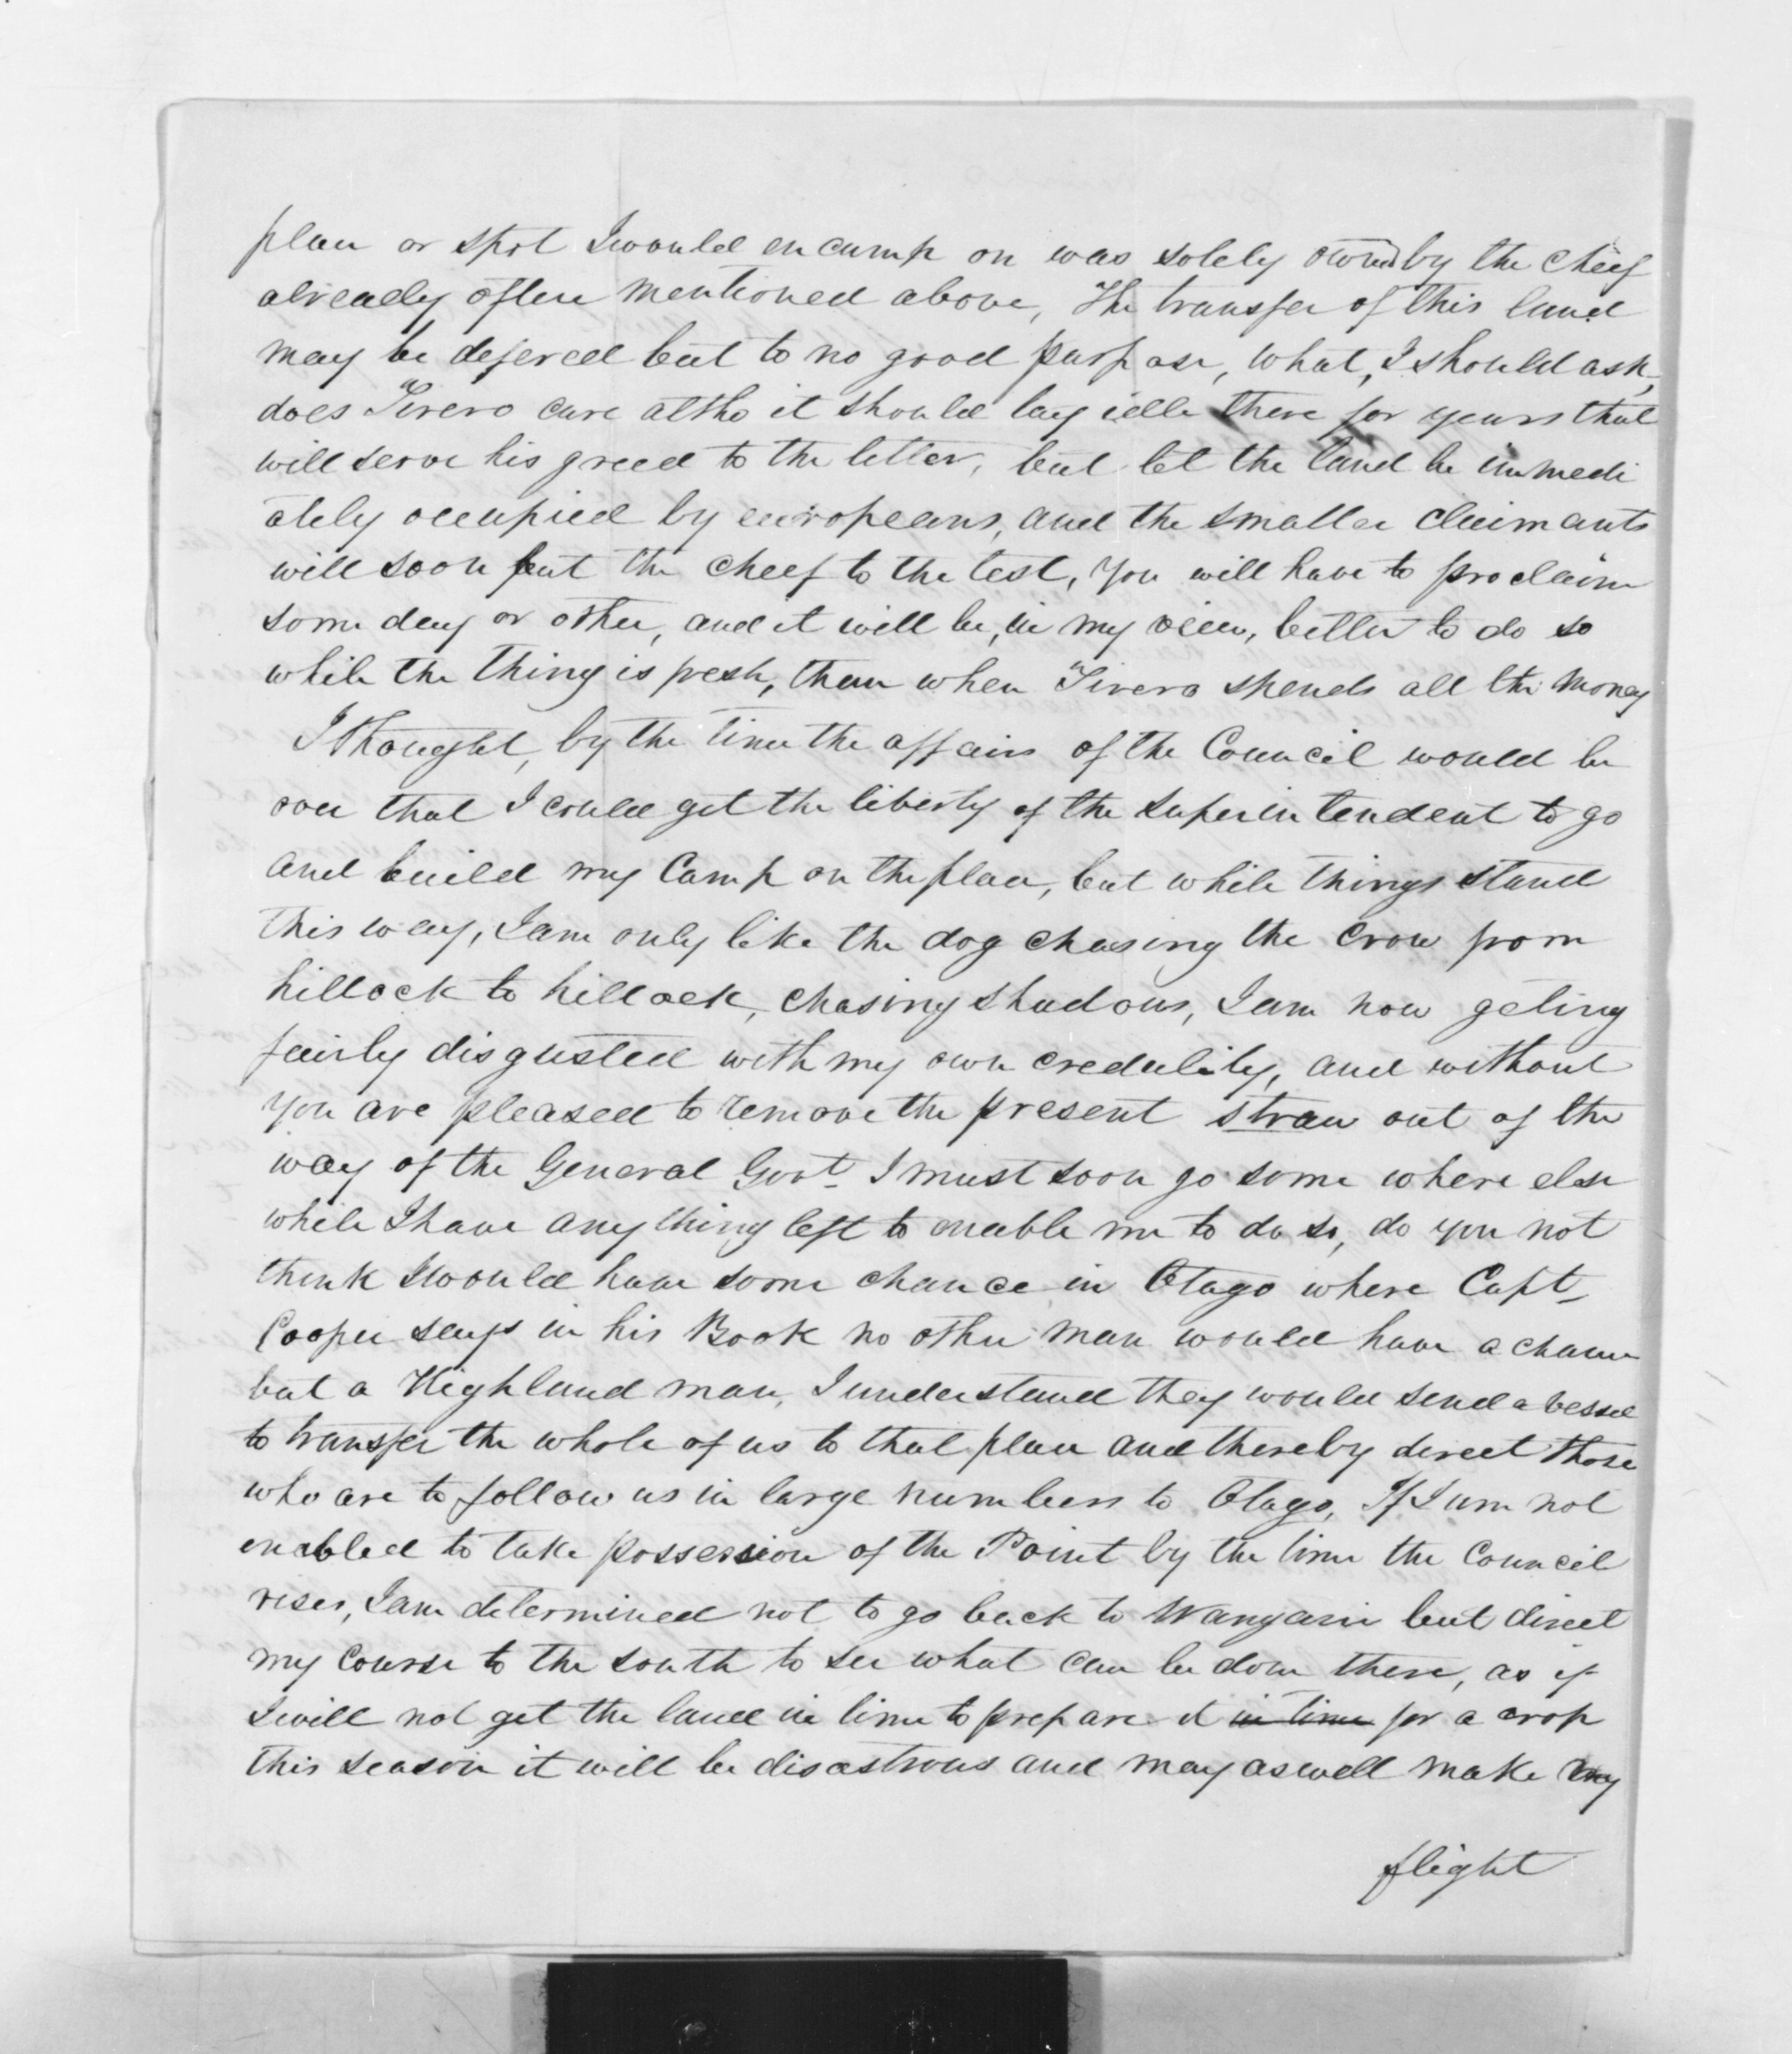 place or spot I would encamp on was solely owned by the cheef
already often mentioned above, The transfer of this land
may be defered but to no good purpose, what, I should ask,
does Tirero care altho it should lay idle there for years that
will serve his greed to the letter, but let the land be immedi
ately occupied by europeans, and the smaller claimants
will soon put the cheef to the test, you will have to proclaim
some day or other, and it will be, in my view, better to do so
while the thing is fresh, than when Tirero spends all the money
I thought, by the time the affairs of the Council would be
over that I could get the liberty of the Superintendent to go
and build my Camp on the place, but while things stand
this way, I am only like the dog chasing the crow from
hillock to hillock, chasing shadows, I am now geting
fairly disgusted with my own credulity, and without
you are pleased to remove the present straw out of the
way of the General Govt I must soon go some where else
while I have any thing left to enable me to do so, do you not
think I would have some chance in Otago where Capt
Cooper says in his Book no other man would have a chance
but a Highland man, I understand they would send a vessel
to transfer the whole of us to that place and thereby direct those
who are to follow us in large numbers to Otago, If I am not
enabled to take possession of the Point by the time the Council
rises, I am determined not to go back to Wangarii but direct
my course to the south to see what can be done there, as if
I will not get the land in time to prepare it in time for a crop
this season it will be disastrous and may aswell make my
flight